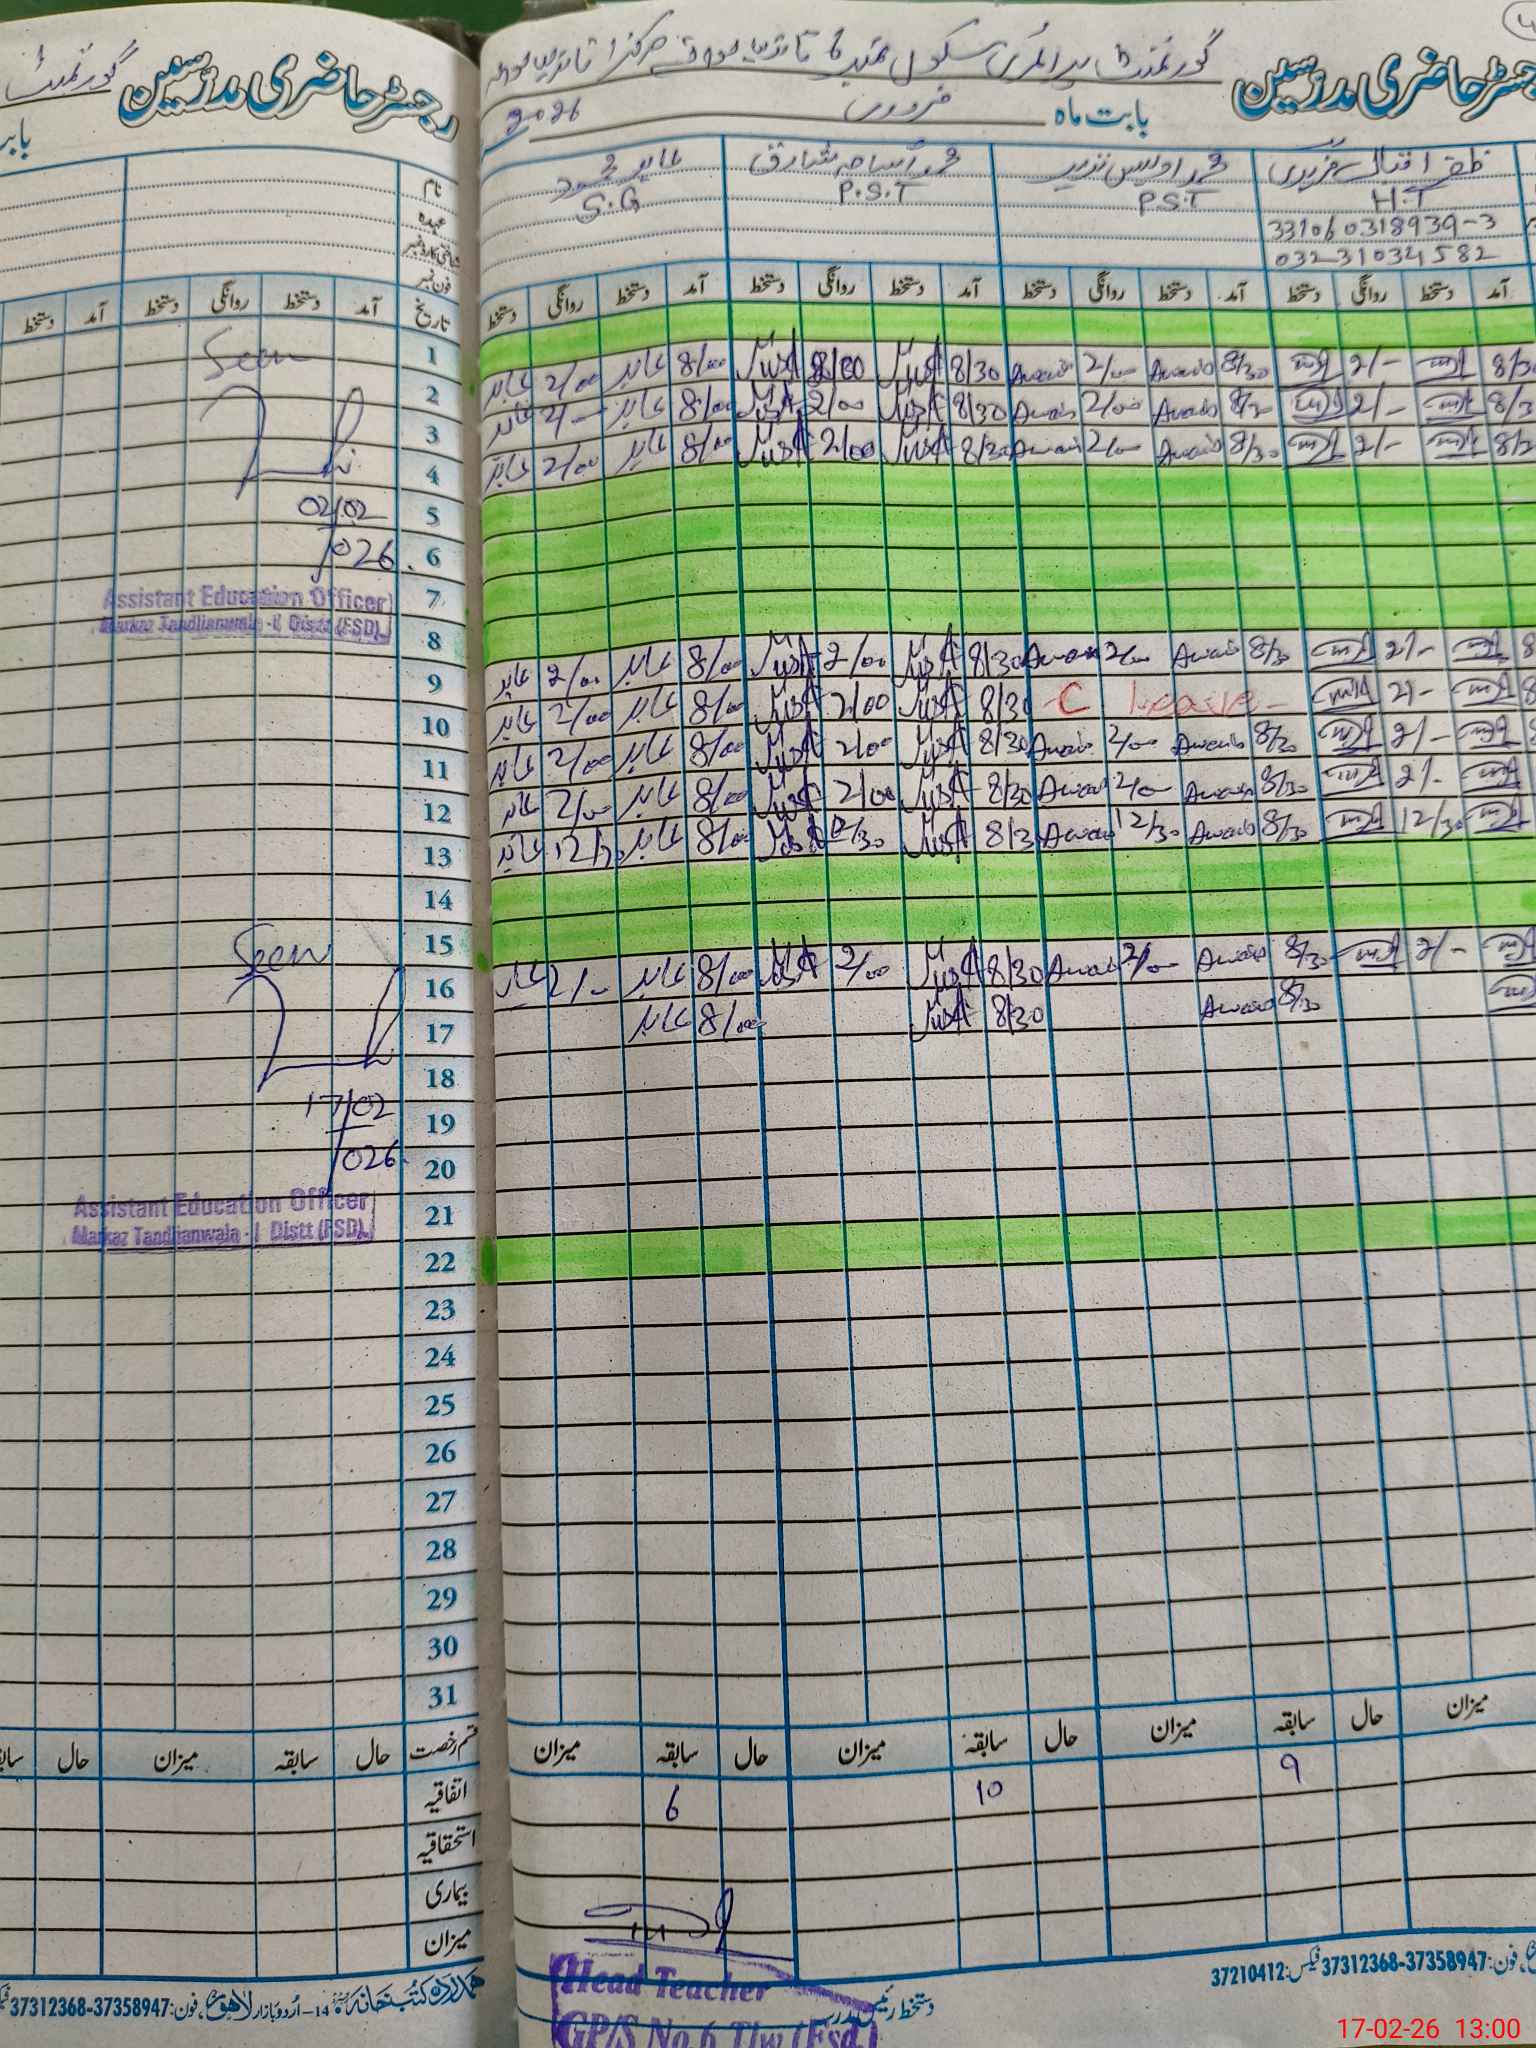 رجسٹر حاضری مدرسین
گورنمنٹ
گورنمنٹ پرائمری سکول نمبر 6 تاندلیانوالہ مرکز 1 تاندلیانوالہ
رجسٹر حاضری مدرسین
بابت ماہ فروری 2026
ظفر اقبال
محمد اویس نذیر
محمد اسامہ شارق
عابد محمود
H.T
P.S.T
P.S.T
S.G
331060318939-3
03231034582
نام
عہدہ
شناختی کارڈ نمبر
فون نمبر
آمد دستخط روانگی دستخط آمد دستخط روانگی دستخط آمد دستخط روانگی دستخط آمد دستخط روانگی دستخط
تاریخ آمد دستخط روانگی دستخط آمد دستخط
1
2 8/30 2/- 8/30 Awais 2/00 Awais 8/30 8/00 عابد 8/00 عابد 2/00
3 2/- Awais 2/00 Awais 8/30 2/00 عابد 8/00 عابد 2/-
4 2/- 8/30 Awais 2/00 Awais 8/30 2/00 عابد 8/00 عابد 2/00
5
6
7
8
9 2/- 8/30 Awais 2/00 Awais 8/30 2/00 عابد 8/00 عابد 2/00
10 2/- C leave 8/30 2/00 عابد 8/00 عابد 2/00
11 2/- 8/30 Awais 2/00 Awais 8/30 2/00 عابد 8/00 عابد 2/00
12 2/- 8/30 Awais 2/00 Awais 8/30 2/00 عابد 8/00 عابد 2/00
13 12/30 8/30 Awais 12/30 Awais 8/30 12/30 عابد 8/00 عابد 12/30
14
15
16 2/- 8/30 Awais 2/00 Awais 8/30 2/00 عابد 8/00 عابد 2/-
17 8/30 Awais 8/30 8/00 عابد
18
19
20
21
22
23
24
25
26
27
28
29
30
31
Seen
02/02
/026.
Assistant Education Officer
Markaz Tandlianwala-I Distt (FSD)
Seen
17/02
/026.
Assistant Education Officer
Markaz Tandlianwala-I Distt (FSD)
میزان حال سابقہ میزان حال سابقہ میزان حال سابقہ میزان
قسم رخصت حال سابقہ میزان حال سابقہ
اتفاقیہ
9 10 6
استحقاقیہ
بیماری
میزان
Head Teacher
GP/S No.6 Tlw (Fsd.)
دستخط رئیس مدرسہ
فون: 37358947-37312368 فیکس: 37210412
ہمدرد کتب خانہ 14-اردو بازار لاہور، فون: 37358947-37312368
17-02-26 13:00